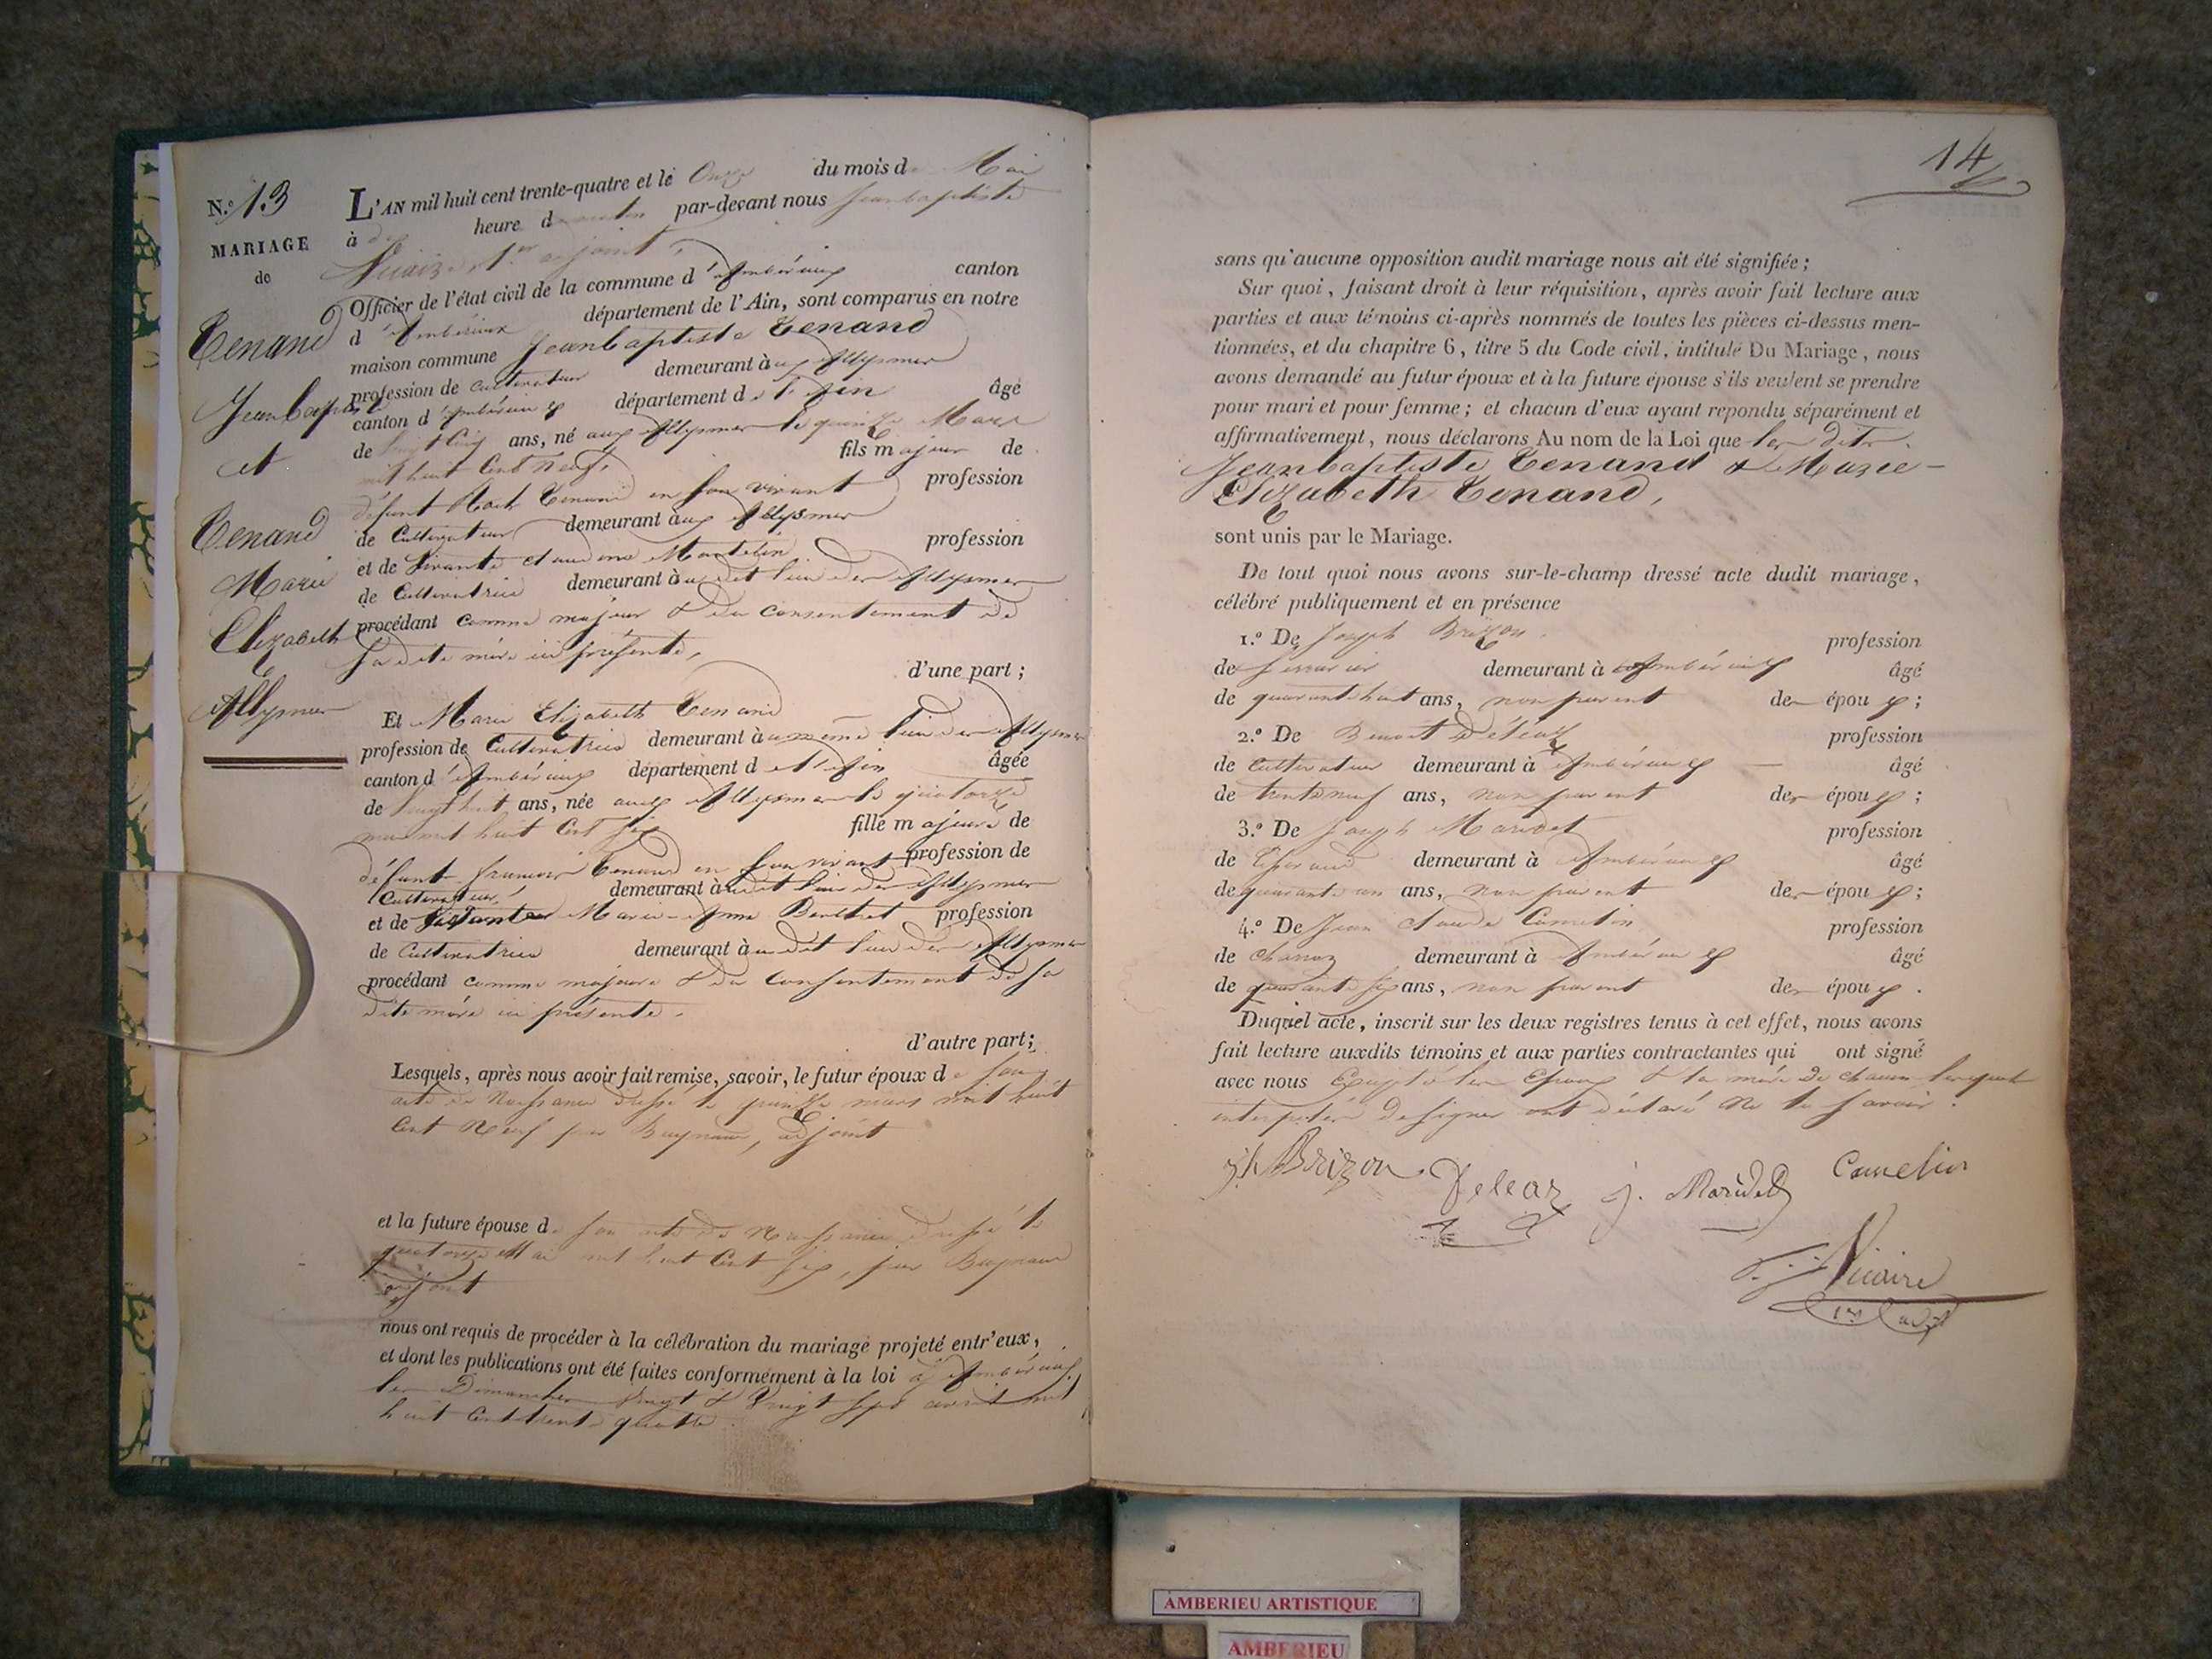 N.° 13
MARIAGE
de
Tenand
Jeanbaptiste
et
Tenand
Marie
Elizabeth
Allymes
L'AN mil huit cent trente-quatre et le Onze du mois de Mai
à dix heure du matin par-devant nous Jeanbaptiste
Vicaire 1.er adjoint,
Officier de l'état civil de la commune d'Ambérieux canton
d'Ambérieux département de l'Ain, sont comparus en notre
maison commune Jeanbaptiste Tenand
profession de cultivateur demeurant aux Allymes
canton d'Ambérieux département de l'Ain âgé
de vingt cinq ans, né aux Allymes le quinze Mars
mil huit Cent Neuf, fils majeur de
défunt Roch Tenand en son vivant profession
de Cultivateur demeurant aux Allymes
et de vivante Claudine Martelin profession
de Cultivatrice demeurant audit lieu des Allymes
procédant comme majeur & du consentement de
sa dite mère ici présente,
d'une part;
Et Marie Elizabeth Tenand
profession de Cultivatrice demeurant au même lieu des Allymes
canton d'Ambérieux département de l'Ain âgée
de vingt huit ans, née aux Allymes le quatorze
mai mil huit Cent Six fille majeure de
défunt françois Tenand en son vivant profession de
Cultivateur, demeurant audit lieu des Allymes
et de Marie-Anne profession
de Cultivatrice demeurant audit lieu des Allymes
procédant comme majeure & du Consentement de sa
dite mère ici présente.
d'autre part;
Lesquels, après nous avoir fait remise, savoir, le futur époux de son
acte de Naissance dressé le quinze mars mil huit
Cent Neuf par adjoint
et la future épouse de son acte de Naissance dressé le
quatorze Mai mil huit Cent Six, par
adjoint
nous ont requis de procéder à la célébration du mariage projeté entr'eux,
et dont les publications ont été faites conformément à la loi à Ambérieux
les Dimanches vingt & vingt sept avril mil
huit Cent trente quatre.
14
sans qu'aucune opposition audit mariage nous ait été signifiée;
Sur quoi, faisant droit à leur réquisition, après avoir fait lecture aux
parties et aux témoins ci-après nommés de toutes les pièces ci-dessus men-
tionnées, et du chapitre 6, titre 5 du Code civil, intitulé Du Mariage, nous
avons demandé au futur époux et à la future épouse s'ils veulent se prendre
pour mari et pour femme; et chacun d'eux ayant repondu séparément et
affirmativement, nous déclarons Au nom de la Loi que les dits
Jeanbaptiste Tenand & Marie-
Elizabeth Tenand,
sont unis par le Mariage.
De tout quoi nous avons sur-le-champ dressé acte dudit mariage,
célébré publiquement et en présence
1.° De Joseph Brizon, profession
de serrurier demeurant à Ambérieux âgé
de quarante huit ans, non parent des époux;
2.° De Benoit Déléaz profession
de Cultivateur demeurant à Ambérieux âgé
de trente neuf ans, non parent des époux;
3.° De Joseph Maridet profession
de demeurant à Ambérieux âgé
de quarante un ans, non parent des époux;
4.° De Jean Claude Camelin profession
de demeurant à Ambérieux âgé
de quarante six ans, non parent des époux.
Duquel acte, inscrit sur les deux registres tenus à cet effet, nous avons
fait lecture auxdits témoins et aux parties contractantes qui ont signé
avec nous Excepté les Epoux & la mère de chacun lesquels
interpelés de signer ont déclaré Ne le savoir.
Brizon
Deleaz
J. Maridet
Camelin
Vicaire
1er adj
AMBERIEU ARTISTIQUE
AMBERIEU